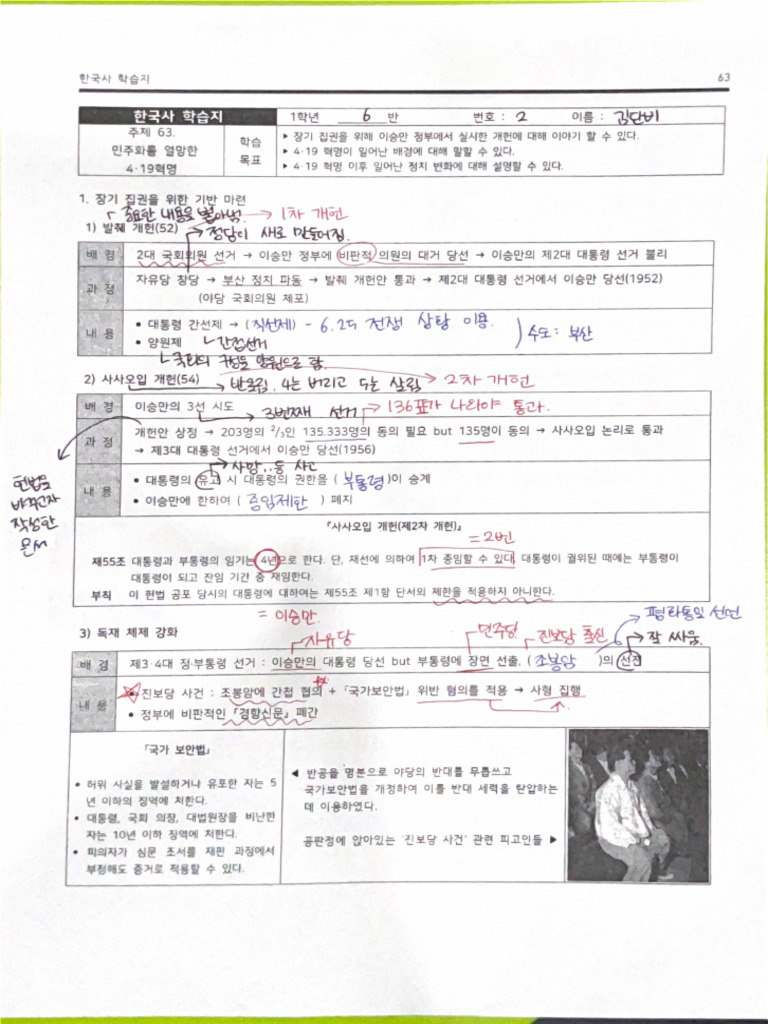 한국사 학습지 63
한국사 학습지 1학년 6 반 번호 : 2 이름 : 김단비
주제 63.
민주화를 열망한
4·19혁명
학습
목표
▶ 장기 집권을 위해 이승만 정부에서 실시한 개헌에 대해 이야기 할 수 있다.
▶ 4·19 혁명이 일어난 배경에 대해 말할 수 있다.
▶ 4·19 혁명 이후 일어난 정치 변화에 대해 설명할 수 있다.
1. 장기 집권을 위한 기반 마련
중요한 내용을 뽑아냄 → 1차 개헌
1) 발췌 개헌(52)
정당이 새로 만들어짐.
배 경 2대 국회의원 선거 → 이승만 정부에 비판적 의원의 대거 당선 → 이승만의 제2대 대통령 선거 불리
과 정 자유당 창당 → 부산 정치 파동 → 발췌 개헌안 통과 → 제2대 대통령 선거에서 이승만 당선(1952)
(야당 국회의원 체포)
내 용 • 대통령 간선제 → (직선제) - 6.25 전쟁 상황 이용. ) 수도: 부산
• 양원제 간접선거
국회의 구성을 양원으로 함.
2) 사사오입 개헌(54) → 반올림. 4는 버리고 5는 살림 → 2차 개헌
배 경 이승만의 3선 시도 3번째 선거 136표가 나와야 통과.
과 정 개헌안 상정 → 203명의 ²/₃인 135.333명의 동의 필요 but 135명이 동의 → 사사오입 논리로 통과
→ 제3대 대통령 선거에서 이승만 당선(1956)
헌법을
바꾸고자
작성한
문서
사망..등 사고
내 용 • 대통령의 유고 시 대통령의 권한을 (부통령)이 승계
• 이승만에 한하여 (중임제한) 폐지
『사사오입 개헌(제2차 개헌)』
= 2번
제55조 대통령과 부통령의 임기는 4년으로 한다. 단, 재선에 의하여 1차 중임할 수 있다. 대통령이 궐위된 때에는 부통령이
대통령이 되고 잔임 기간 중 재임한다.
부칙 이 헌법 공포 당시의 대통령에 대하여는 제55조 제1항 단서의 제한을 적용하지 아니한다.
= 이승만.
3) 독재 체제 강화
자유당 민주당 진보당 출신 평화통일 선언
잘 싸움.
배 경 제3·4대 정·부통령 선거 : 이승만의 대통령 당선 but 부통령에 장면 선출, (조봉암)의 선전
내 용 • 진보당 사건 : 조봉암에 간첩 협의 + 『국가보안법』 위반 혐의를 적용 → 사형 집행
• 정부에 비판적인 『경향신문』 폐간
『국가 보안법』
• 허위 사실을 발설하거나 유포한 자는 5
년 이하의 징역에 처한다.
• 대통령, 국회 의장, 대법원장을 비난한
자는 10년 이하 징역에 처한다.
• 피의자가 심문 조서를 재판 과정에서
부정해도 증거로 적용할 수 있다.
◀ 반공을 명분으로 야당의 반대를 무릅쓰고
국가보안법을 개정하여 이를 반대 세력을 탄압하는
데 이용하였다.
공판정에 앉아있는 '진보당 사건' 관련 피고인들 ▶